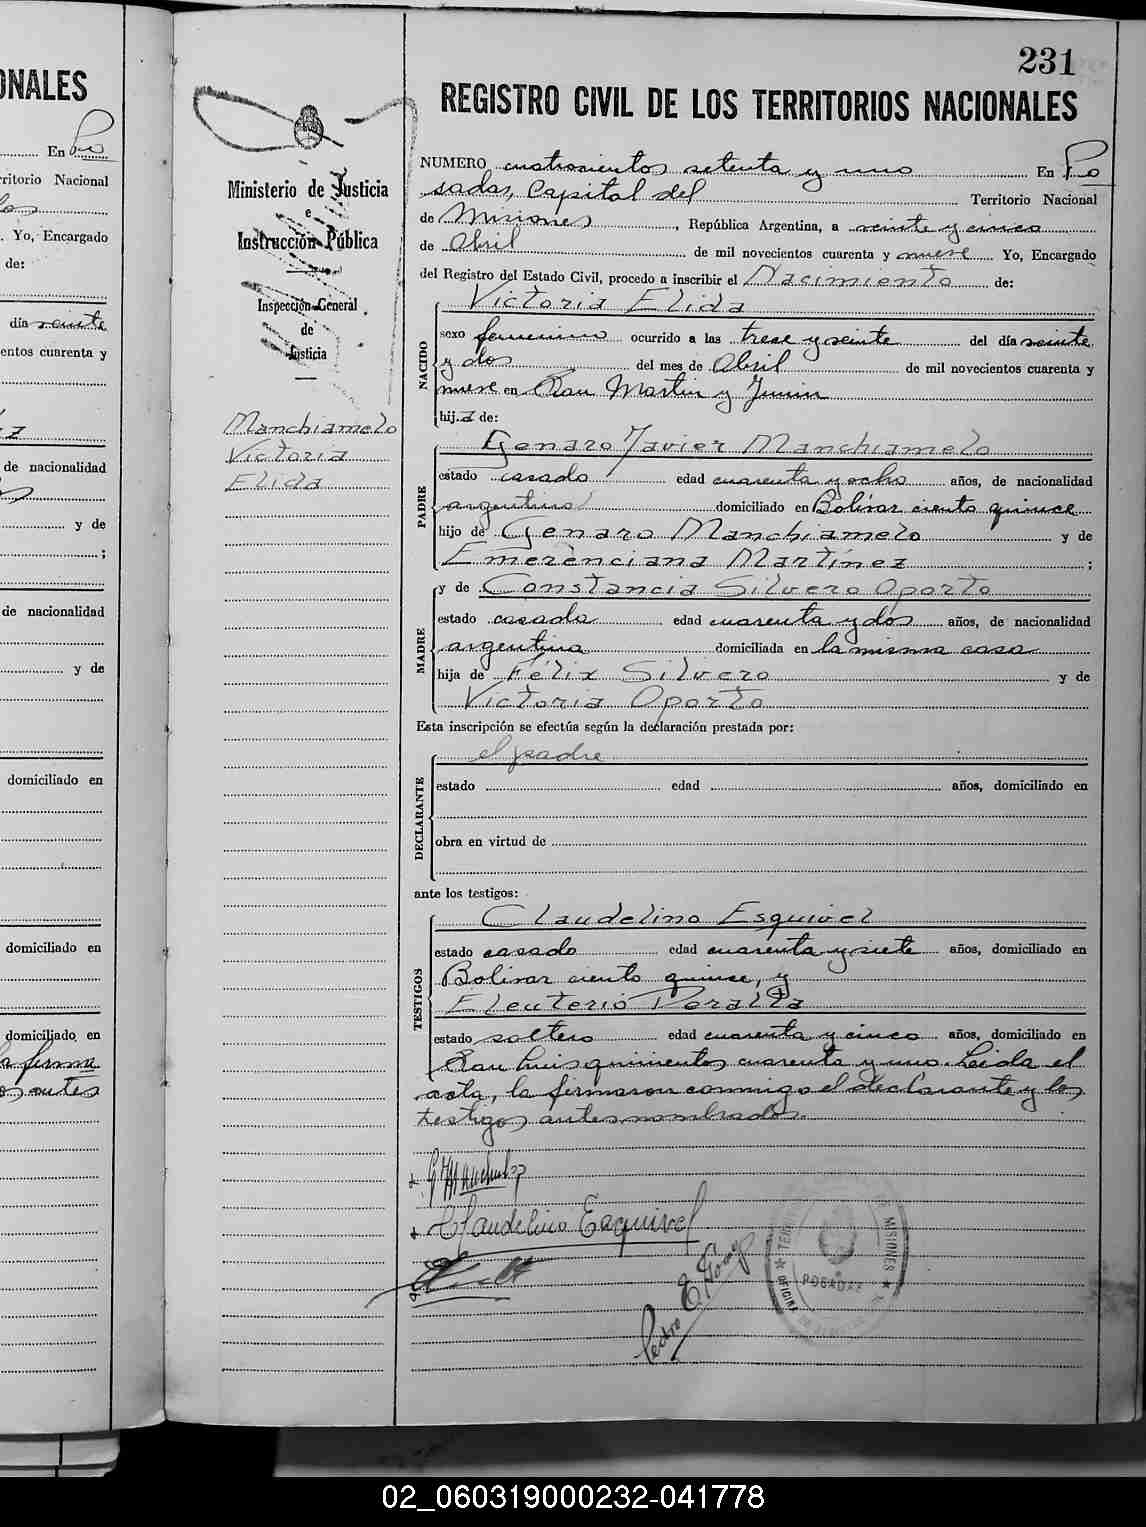 ONALES
En Po
rritorio Nacional
. Yo, Encargado
de:
día veinte
entos cuarenta y
ez
de nacionalidad
y de
;
de nacionalidad
y de
domiciliado en
domiciliado en
domiciliado en
a firma
antes
231
REGISTRO CIVIL DE LOS TERRITORIOS NACIONALES
Ministerio de Justicia
e
Instrucción Pública
Inspección General
de
Justicia
Manchiamelo
Victoria
Elida
NUMERO cuatrocientos setenta y uno En Po
sadas, Capital del Territorio Nacional
de Misiones, República Argentina, a veinte y cinco
de Abril de mil novecientos cuarenta y nueve Yo, Encargado
del Registro del Estado Civil, procedo a inscribir el Nacimiento de:
NACIDO
Victoria Elida
sexo femenino ocurrido a las trece y veinte del día veinte
y dos del mes de Abril de mil novecientos cuarenta y
nueve en San Martin y Junin
hija de:
PADRE
Genaro Javier Manchiamelo
estado casado edad cuarenta y ocho años, de nacionalidad
argentino domiciliado en Bolívar ciento quince
hijo de Genaro Manchiamelo y de
Emerenciana Martínez ;
MADRE
y de Constancia Silvero Oporto
estado casada edad cuarenta y dos años, de nacionalidad
argentina domiciliada en la misma casa
hija de Félix Silvero y de
Victoria Oporto
Esta inscripción se efectúa según la declaración prestada por:
DECLARANTE
el padre
estado edad años, domiciliado en
obra en virtud de
ante los testigos:
TESTIGOS
Claudelino Esquivel
estado casado edad cuarenta y siete años, domiciliado en
Bolívar ciento quince, y
Eleuterio Peralta
estado soltero edad cuarenta y cinco años, domiciliado en
San Luis quinientos cuarenta y uno. Leida el
acta, la firmaron conmigo el declarante y los
testigos antes nombrados.
Claudelino Esquivel
Pedro E.
MISIONES
POSADAS
OFICINA
02_060319000232-041778